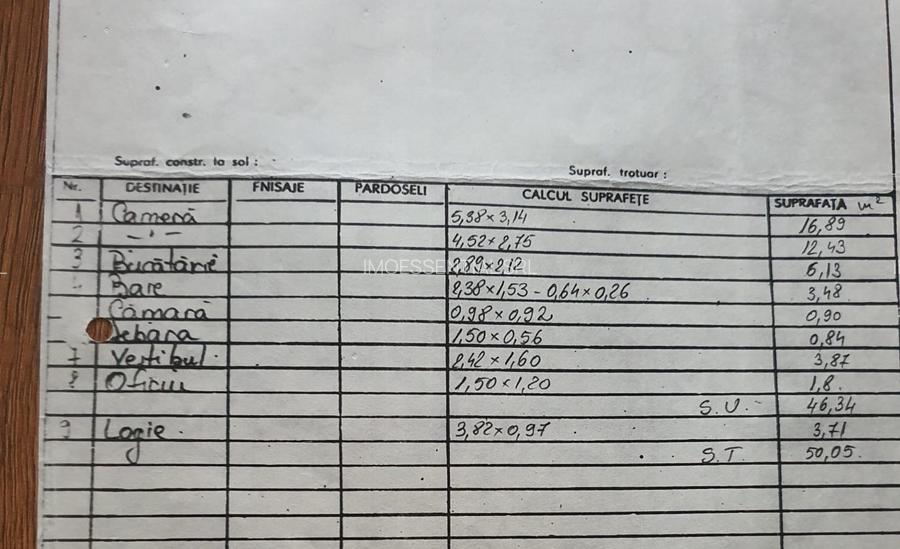 Supraf. constr. la sol :
Supraf. trotuar :
Nr. DESTINAȚIE FNISAJE PARDOSELI CALCUL SUPRAFEȚE SUPRAFAȚA m²
1 Cameră 5,38×3,14 16,89
2 —"— 4,52×2,75 12,43
3 Bucătărie 2,89×2,12 6,13
Baie 2,38×1,53 - 0,64×0,26 3,48
Cămară 0,98×0,92 0,90
Debara 1,50×0,56 0,84
7 Vestibul 2,42×1,60 3,87
8 Oficiu 1,50×1,20 1,8
S.U. 46,34
9 Logie 3,82×0,97 3,71
S.T. 50,05